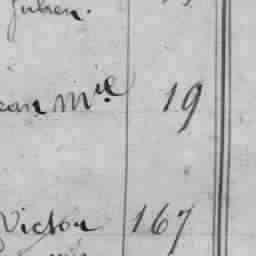 Julien.
ean Mie 19
Victor 167